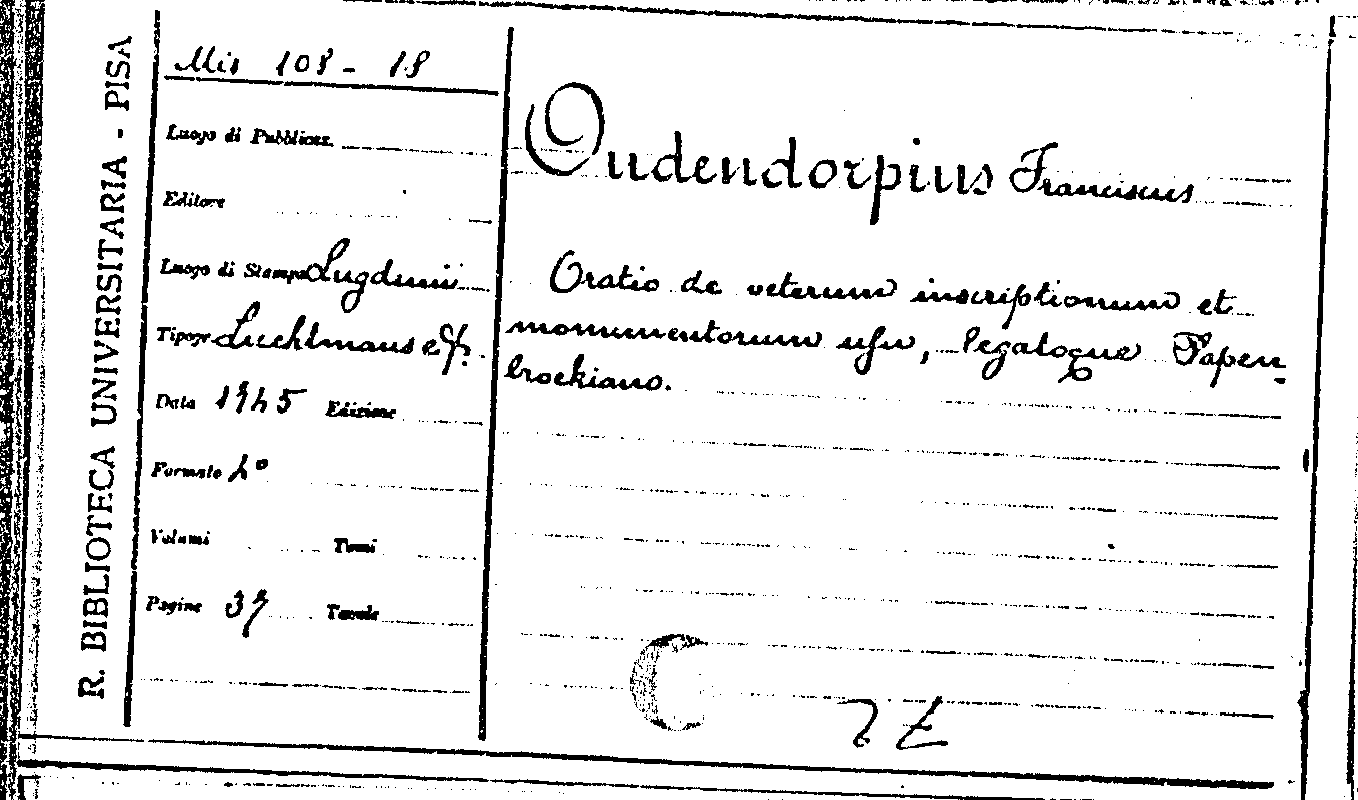 R. BIBLIOTECA UNIVERSITARIA - PISA
Mis 108 - 18
Luogo di Pubblicaz.
Editore
Luogo di Stampa Lugduni
Tipogr. Luchtmans et f.
Data 1745 Edizione
Formato 4°
Volumi Tomi
Pagine 37 Tavole
Oudendorpius Franciscus
Oratio de veterum inscriptionum et
monumentorum usu, legatoque Papen-
broekiano.